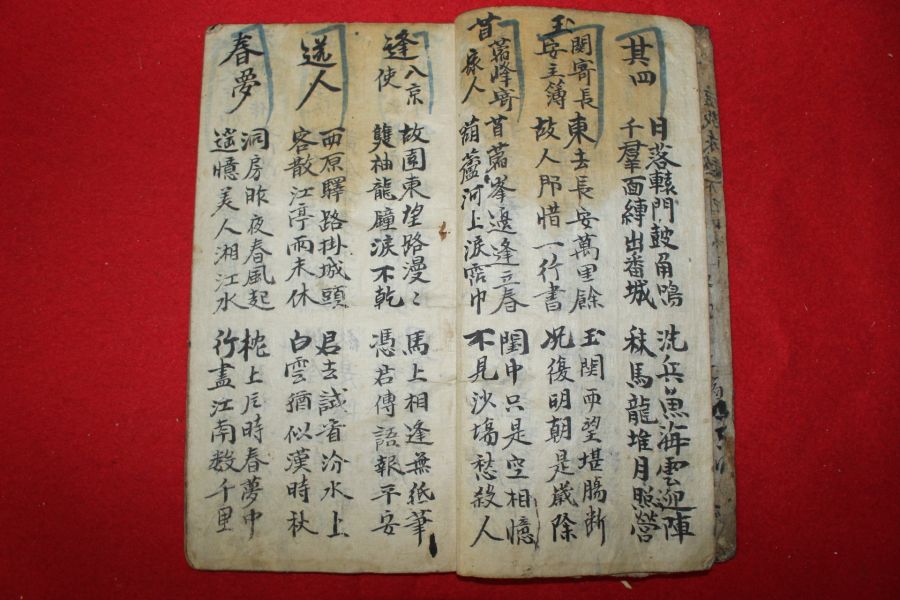 其四
日落轅門鼓角鳴
千羣面縛出番城
洗兵魚海雲迎陣
秣馬龍堆月照營
玉関寄長安主簿
東去長安萬里餘
故人那惜一行書
玉関西望堪腸斷
况復明朝是歲除
苜蓿峰寄家人
苜蓿峯邊逢立春
葫蘆河上淚霑巾
閨中只是空相憶
不見沙場愁殺人
逢入京使
故園東望路漫〻
雙袖龍朣淚不乾
馬上相逢無紙筆
憑君傳語報平安
送人
西原驛路掛城頭
客散江亭雨未休
君去試看汾水上
白雲猶似漢時秋
春夢
洞房昨夜春風起
遙憶美人湘江水
枕上片時春夢中
行盡江南數千里